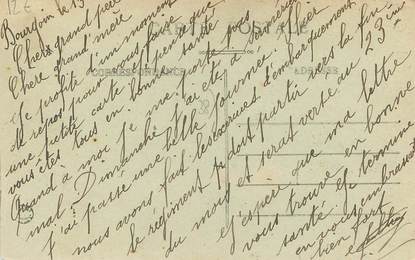 Bourgoin le 13
Cher grand père
Chère grand'mère
Je profite d'un moment
de repos pour vous faire
une petite carte je pense que
vous êtes tous en bonne santé
Quand à moi je me porte pas
mal. Dimanche j'ai été à
j'ai passé une belle journée. Hier
nous avons fait les exercices d'embarquement
le régiment doit partir vers la fin
du mois et serait versé au 23ème
J'espère que ma lettre
vous trouve en bonne
santé Je termine
en vous embrassant
bien fort
CARTE POSTALE
CORRESPONDANCE
ADRESSE